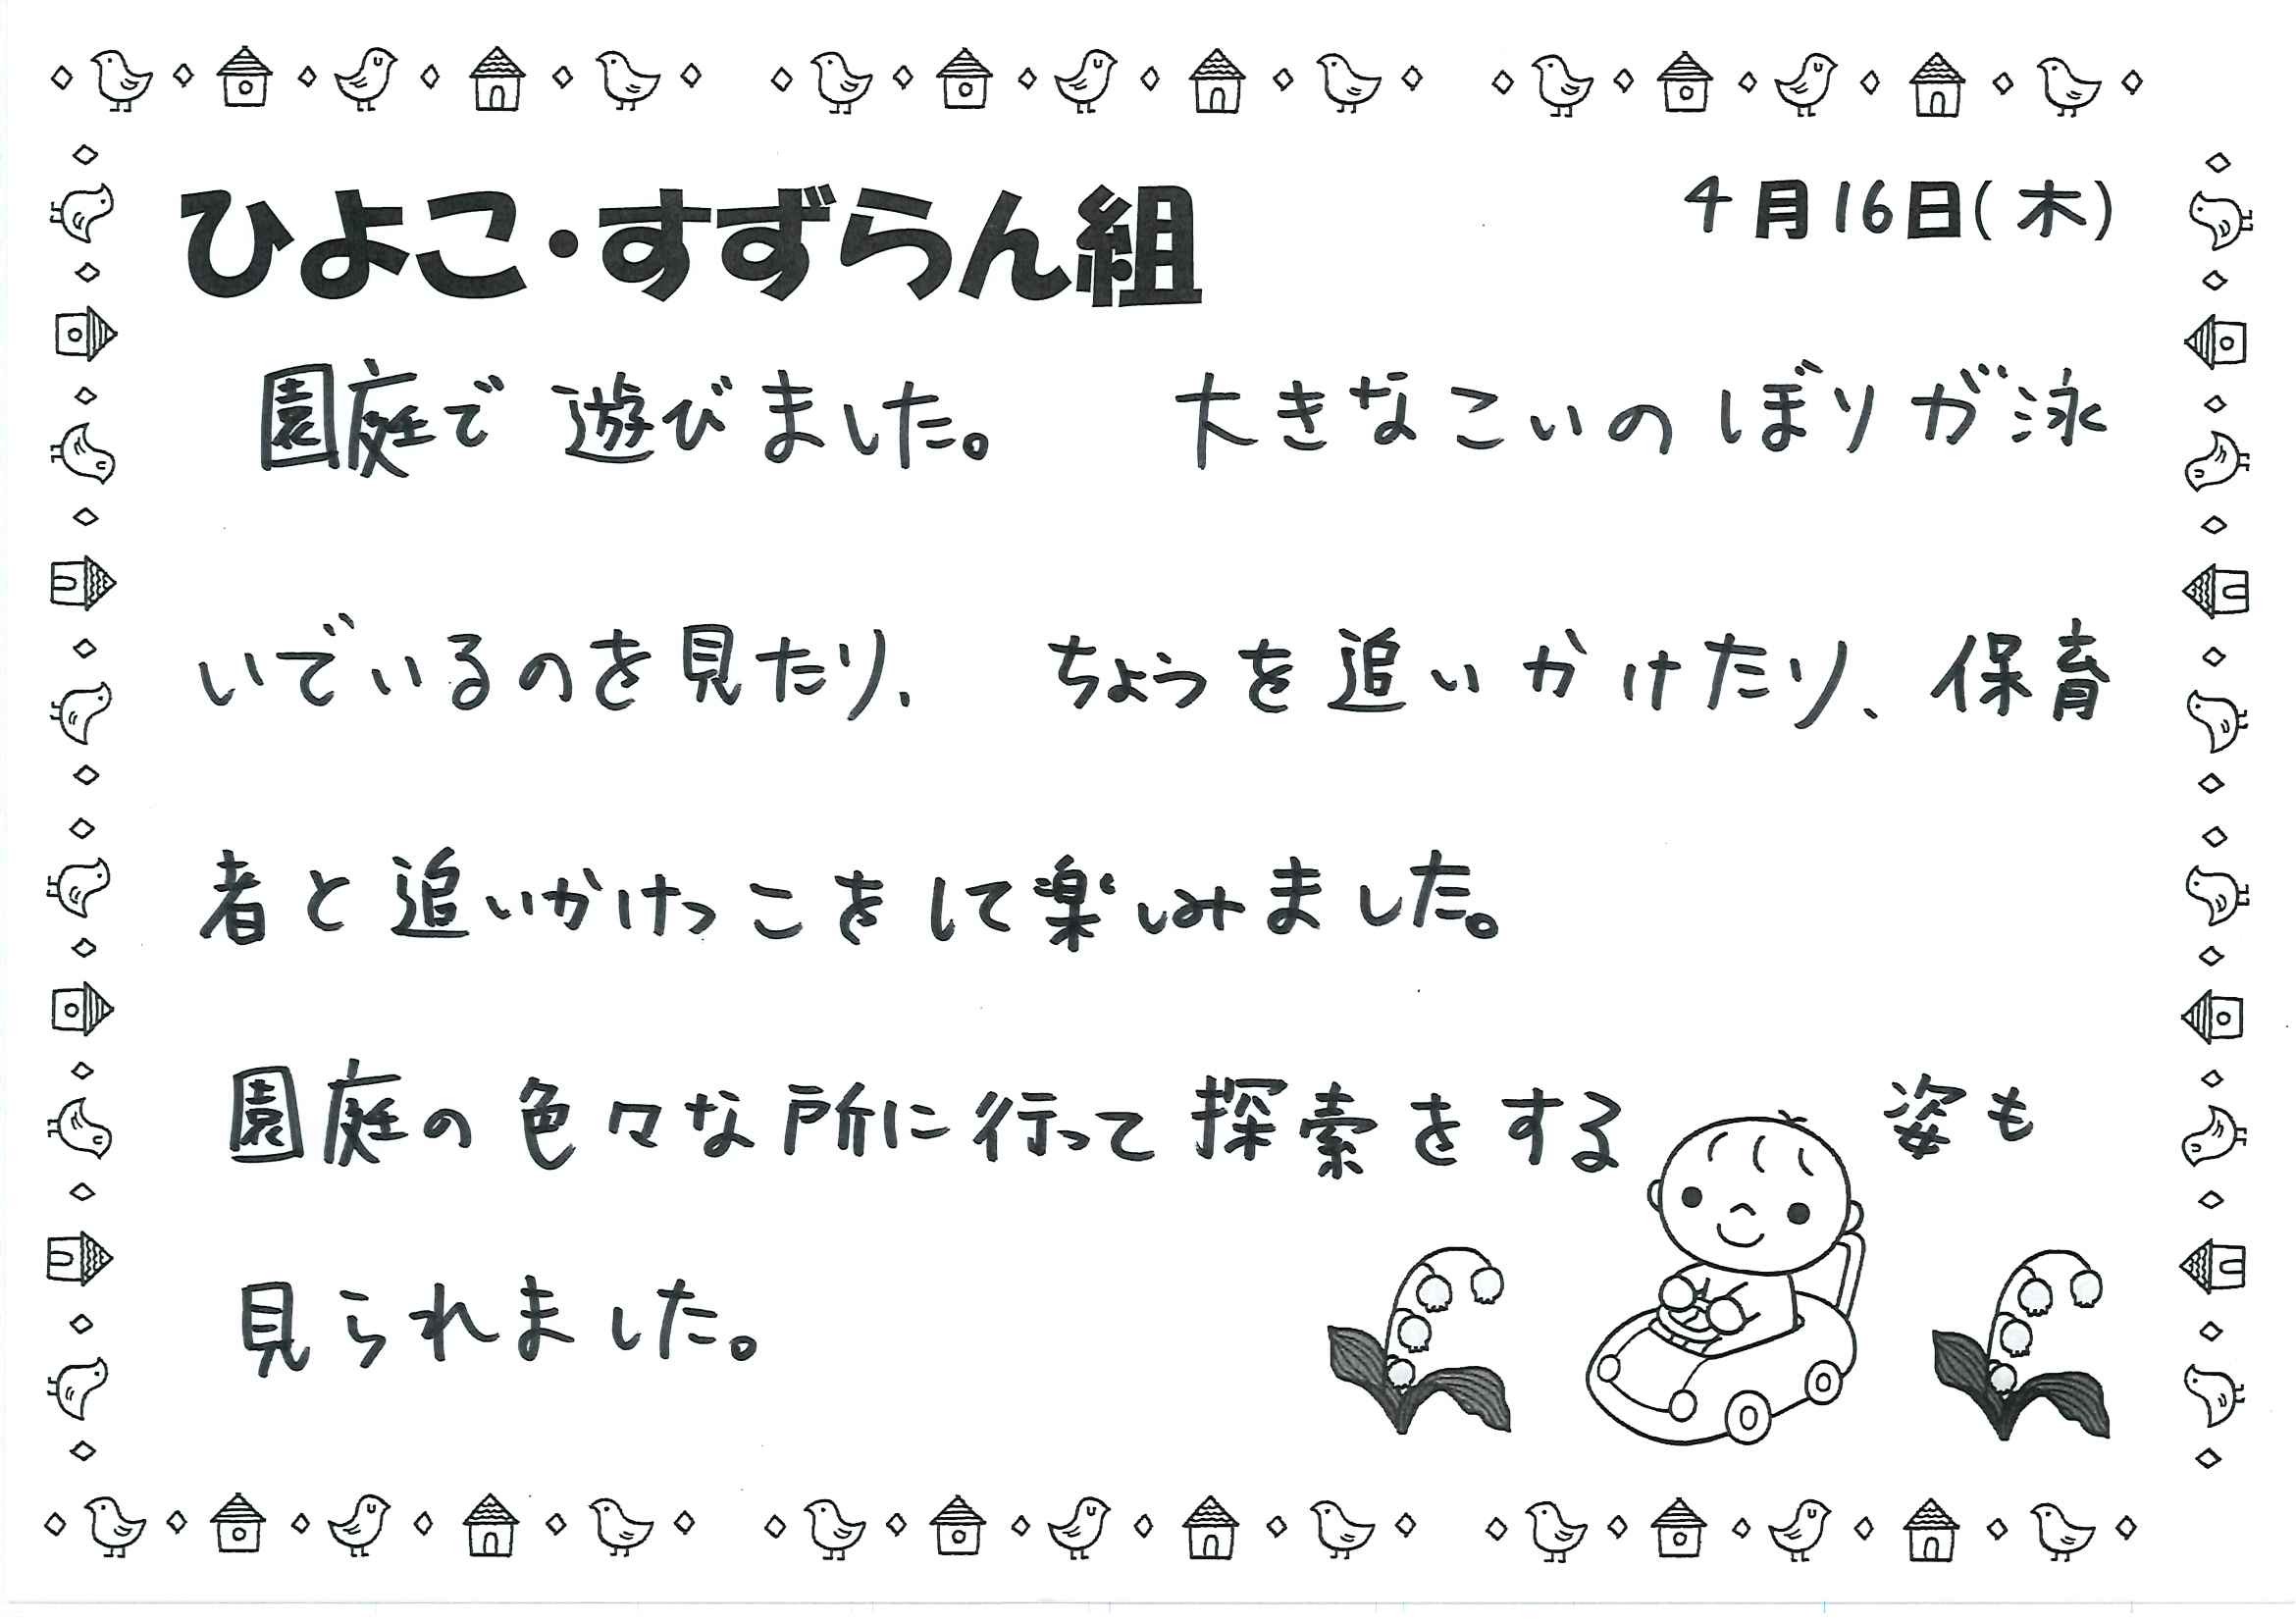 ひよこ・すずらん組
4月16日(木)
園庭で遊びました。 大きなこいのぼりが泳
いでいるのを見たり、ちょうを追いかけたり、保育
者と追いかけっこをして楽しみました。
園庭の色々な所に行って探索をする姿も
見られました。